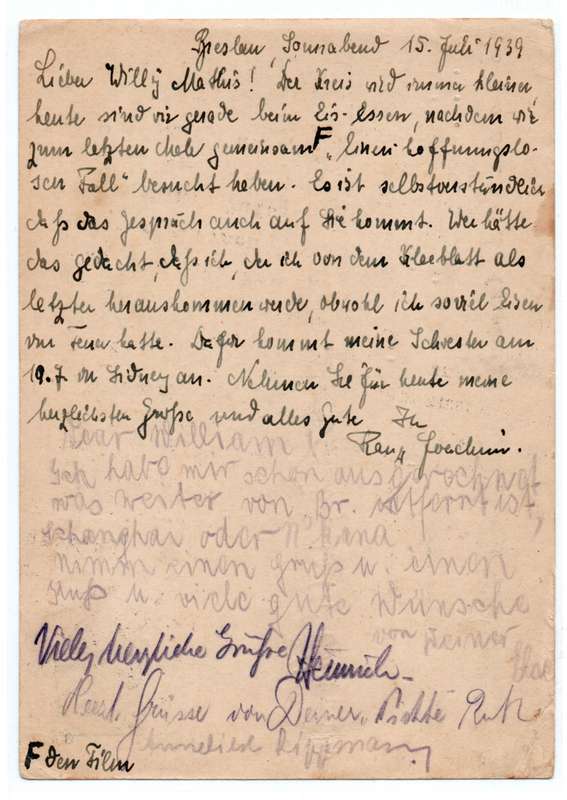 Breslau, Sonnabend 15. Juli 1939
Lieber Willy Mathis! Der Kreis wird immer kleiner,
heute sind wir gerade beim Eis-Essen, nachdem wir
zum letzten Male gemeinsam F „Einen hoffnungslo-
sen Fall" besucht haben. Es ist selbstverständlich
daß das Gespräch auch auf Sie kommt. Wer hätte
das gedacht, daß ich, der ich von dem Kleeblatt als
letzter herauskommen werde, obwohl ich soviel Eisen
im Feuer hatte. Dafür kommt meine Schwester am
19.7 in Sidney an. Nehmen Sie für heute meine
herzlichsten Grüße und alles Gute Ihr
Franz Joachim.
Dear William!
Ich habe mir schon ausgerechnet
was weiter von Br. entfernt ist,
Schanghai oder
nimm einen Gruß u. einen
Kuß u. viele gute Wünsche
von Deiner
Viele herzliche Grüße Heinrich
Herzl. Grüsse von Deiner
Anneliese
F den Film